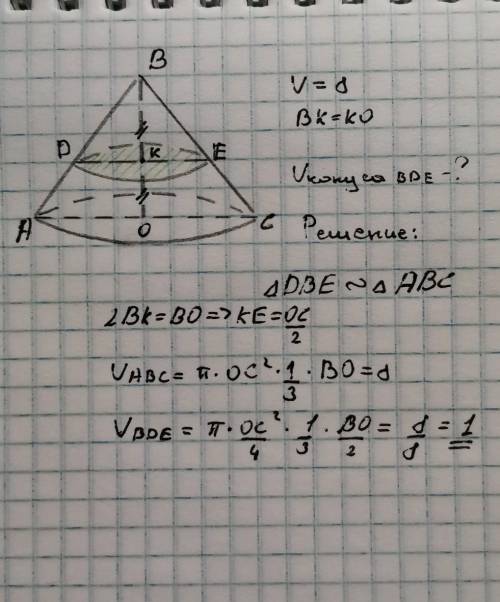 B
D K E
A O C
V = 8
BK = KO
Vконуса BDE - ?
Решение:
△DBE ~ △ABC
2BK = BO => KE = OC/2
VABC = π · OC² · 1/3 · BO = 8
VBDE = π · OC²/4 · 1/3 · BO/2 = 8/8 = 1